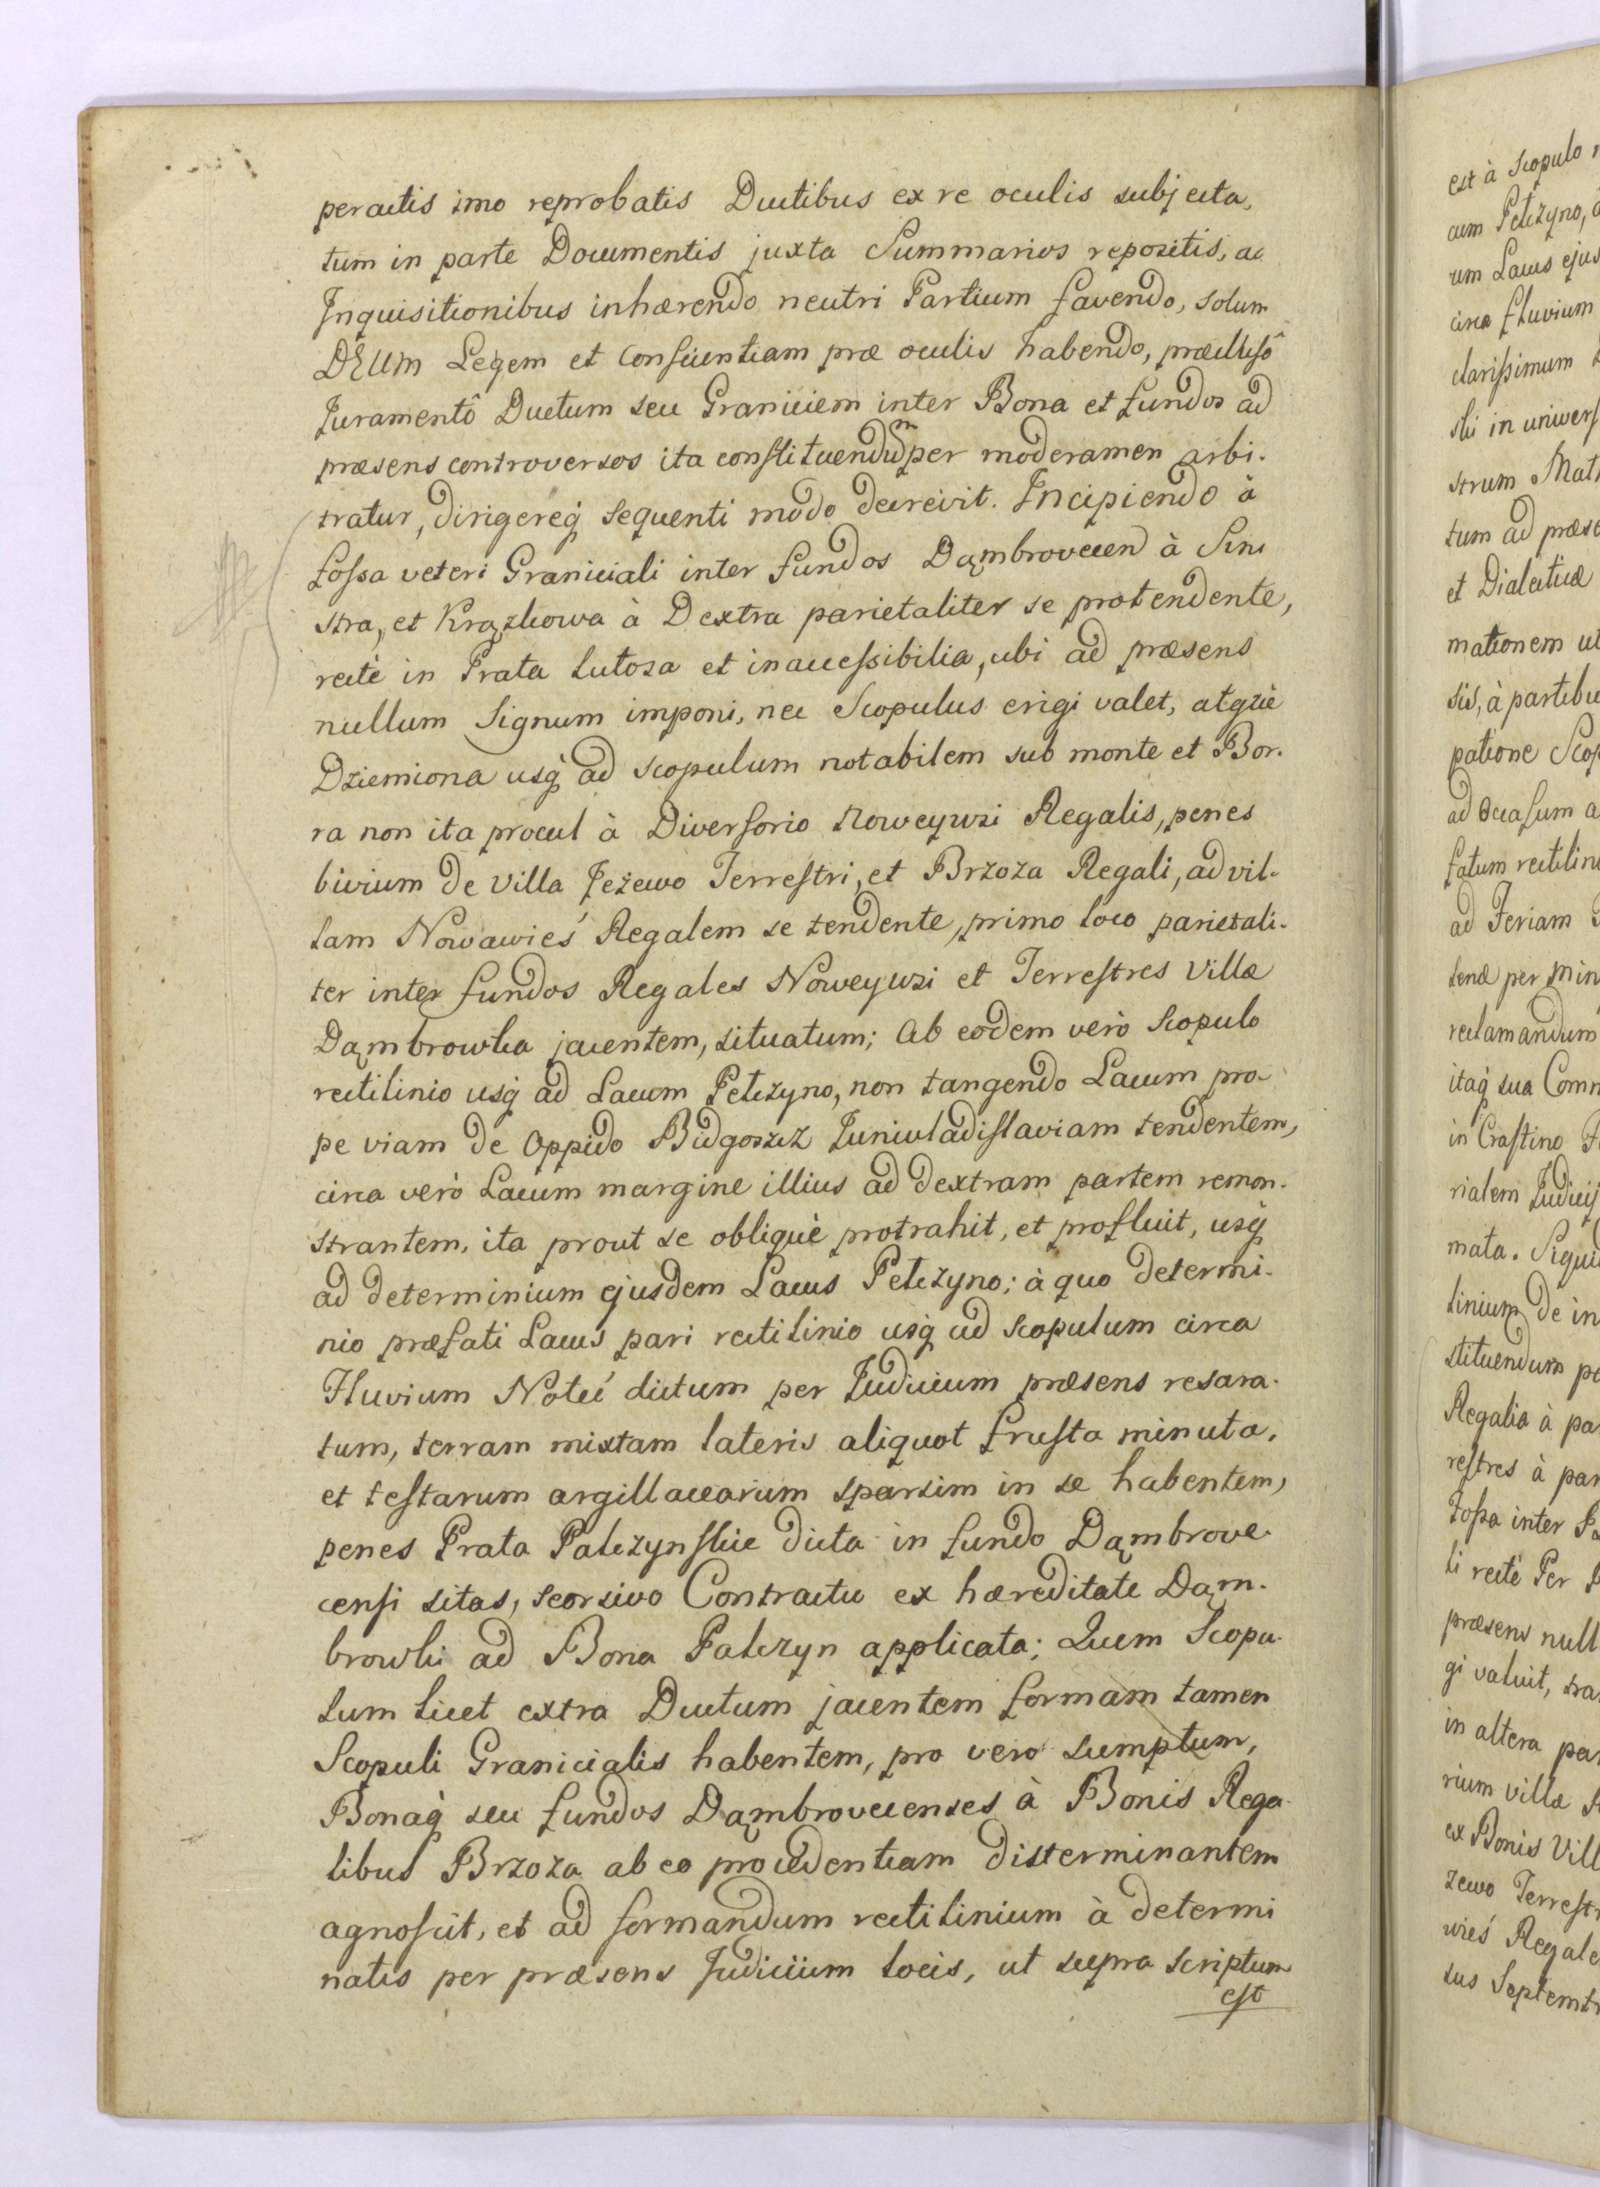 peractis imo reprobatis Ductibus ex re oculis subjecta,
tum in parte Documentis juxta Summarios repositis, ac
Inquisitionibus inhærendo neutri Partium favendo, solum
DEUM Legem et Conscientiam præ oculis habendo,
Juramentô Ductum seu Graniciem inter Bona et fundos ad
præsens controversos ita constituendum per moderamen arbi-
tratur, dirigereq̀ sequenti modo decrevit. Incipiendo à
fossa veteri Graniciali inter fundos Dąmbrovcen à Sini
stra, et Krążkowa à Dextra parietaliter se protendente,
rectè in Prata lutosa et inaccessibilia, ubi ad præsens
nullum Signum imponi, nec Scopulus erigi valet, atqùe
Dziemiona usq̀ ad scopulum notabilem sub monte et Bor-
ra non ita procul à Diversorio Noweywsi Regalis, penes
bivium de Villa Jeżewo Terrestri, et Brzoza Regali, ad vil-
lam Nowawieś Regalem se tendente, primo loco parietali-
ter inter fundos Regales Noweywsi et Terrestres Villæ
Dąmbrowka jacentem, situatum; Ab eodem verò Scopulo
rectilinio usq̀ ad Lacum Petczyno, non tangendo Lacum pro-
pe viam de Oppido Bidgoszcz Juniuladislaviam tendentem,
circa verò Lacum margine illius ad dextram partem remon-
strantem, ita prout se obliquè protrahit, et profluit, usq̀
ad determinium ejusdem Lacus Petczyno; à quo determi-
nio præfati Lacus pari rectilinio usq̀ ad scopulum circa
Fluvium Noteć dictum per Judicium præsens resara-
tum, terram mixtam lateris aliquot frusta minuta,
et testarum argillacearum sparsim in se habentem,
penes Prata Palczynskie dicta in fundo Dąmbrove-
censi sitas, seorsivo Contractu ex hæreditate Dąm-
browki ad Bona Palczyn applicata; Quem Scopu-
lum licet extra Ductum jacentem formam tamen
Scopuli Granicialis habentem, pro vero sumptum,
Bonaq̀ seu fundos Dąmbrovcenses à Bonis Rega-
libus Brzoza ab eo procedentiam disterminantem
agnoscit, et ad formandum rectilinium à determi
natis per præsens Judicium locis, ut supra scriptum
est
est à Scopulo
cum Petczyno,
um Lacus ejus
circa fluvium
clarissimum
ski in univers
strum Mat
tum ad præse
et Dialecticæ
mationem ut
sis, à partibu
patione Scop
ad Occasum a
fatum rectilin
ad Feriam
lenæ per Min
reclamandum
itaq̀ sua Comm
in Crastino
rialem Judicij
mata. Siqui
linium de in
stituendum pe
Regalia à pa
restres à par
Fossa inter
li rectè Per
præsens null
gi valuit, tra
in altera par
rium villæ
ex Bonis Vill
żewo Terrestr
wieś Regale
sus Septemtr